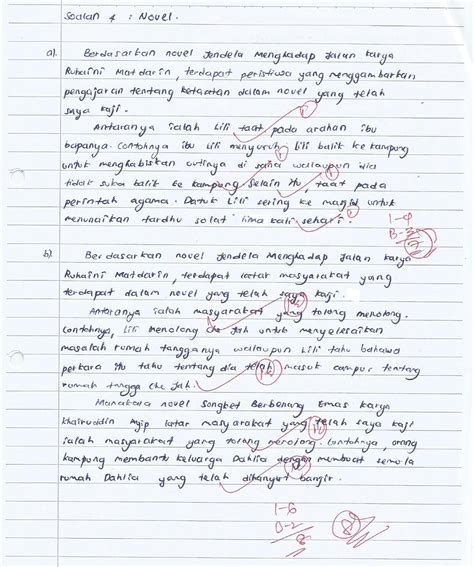 Soalan 4 : Novel.
a). Berdasarkan novel Jendela Menghadap Jalan karya
Ruhaini Matdarin, terdapat peristiwa yang menggambarkan
pengajaran tentang ketaatan dalam novel yang telah
saya kaji.
Antaranya ialah Lili taat pada arahan ibu
bapanya. Contohnya ibu Lili menyuruh Lili balik ke kampung
untuk menghabiskan cutinya di sana walaupun dia
tidak suka balik ke kampung. Selain itu, taat pada
perintah agama. Datuk Lili sering ke masjid untuk
menunaikan fardhu solat lima kali sehari.
I-4
B-3
b). Berdasarkan novel Jendela Menghadap Jalan karya
Ruhaini Matdarin, terdapat latar masyarakat yang
terdapat dalam novel yang telah saya kaji.
Antaranya ialah masyarakat yang tolong menolong.
Contohnya, Lili menolong Che Jah untuk menyelesaikan
masalah rumah tangganya walaupun Lili tahu bahawa
perkara itu tahu tentang dia telah masuk campur tentang
rumah tangga Che Jah.
Manakala novel Songket Berbenang Emas karya
Khairuddin Ayip latar masyarakat yang telah saya kaji
ialah masyarakat yang tolong menolong. Contohnya, orang
kampung membantu keluarga Dahlia dengan membuat semula
rumah Dahlia yang telah dihanyut banjir.
I-6
B-2
8
8